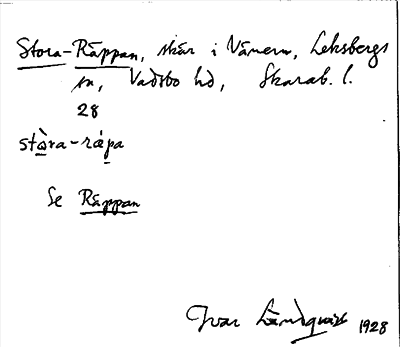 Stora-Räppan, skär i Vänern, Leksbergs
sn, Vadsbo hd, Skarab. l.
28
stòra-rápa
Se Räppan
Ivar Lundquist 1928